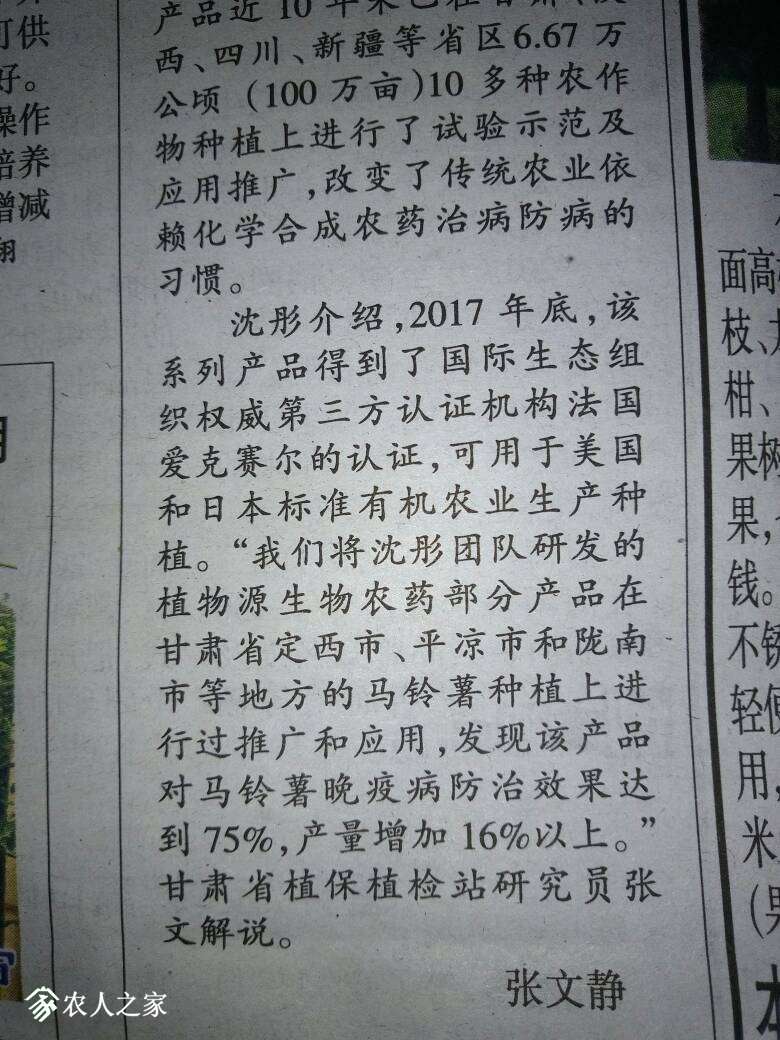 可供
好。
操作
培养
增减
翔
产品近10年来已在甘肃、陕
西、四川、新疆等省区6.67万
公顷（100万亩)10多种农作
物种植上进行了试验示范及
应用推广,改变了传统农业依
赖化学合成农药治病防病的
习惯。
沈彤介绍,2017年底,该
系列产品得到了国际生态组
织权威第三方认证机构法国
爱克赛尔的认证,可用于美国
和日本标准有机农业生产种
植。“我们将沈彤团队研发的
植物源生物农药部分产品在
甘肃省定西市、平凉市和陇南
市等地方的马铃薯种植上进
行过推广和应用,发现该产品
对马铃薯晚疫病防治效果达
到75%,产量增加16%以上。”
甘肃省植保植检站研究员张
文解说。
张文静
面高
枝、
柑、
果树
果,
钱。
不锈
轻便
用,
米
农人之家